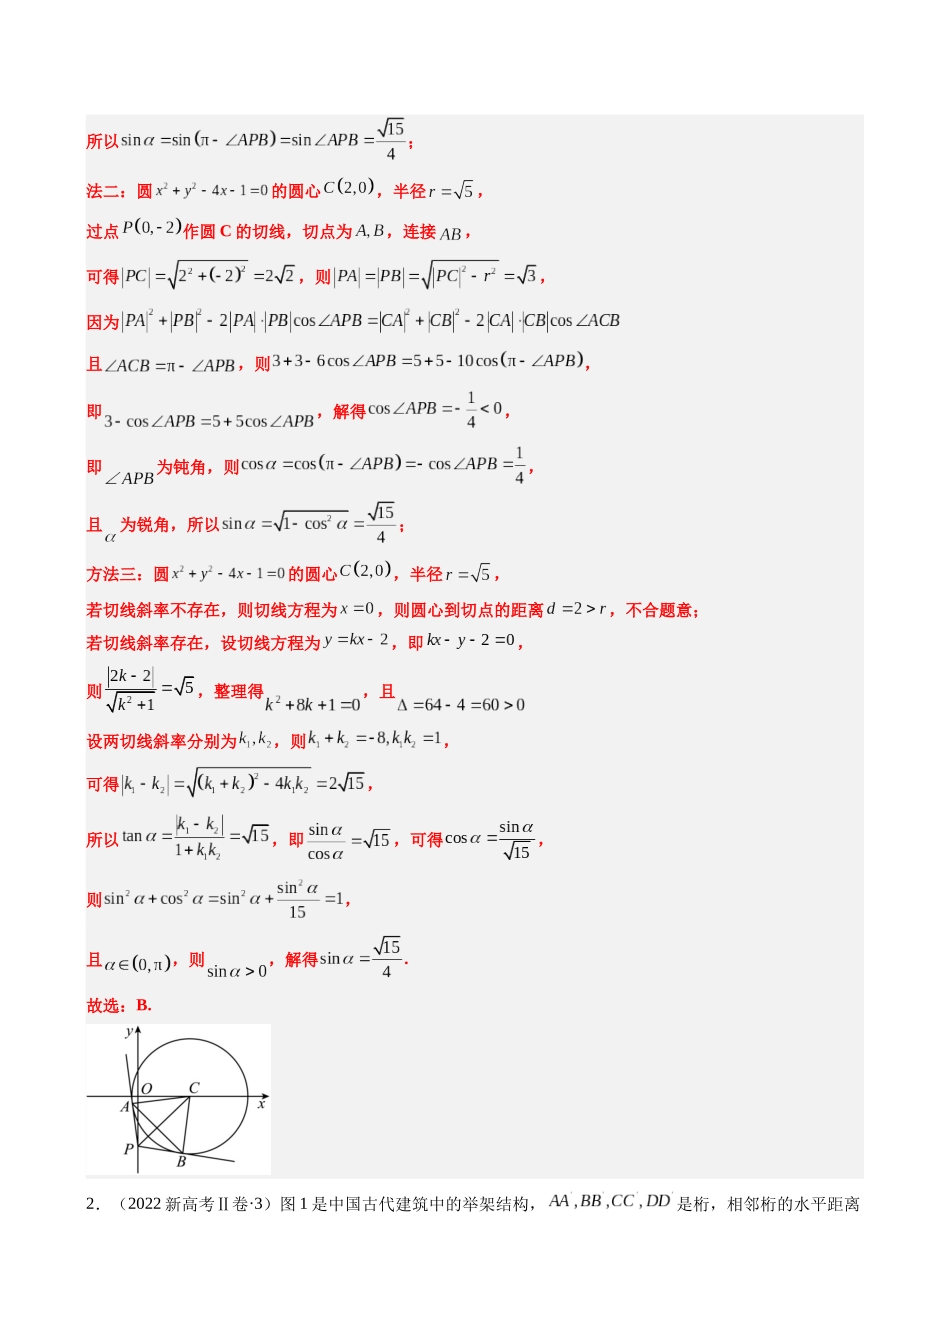 所以sinα=sin(π-∠APB)=sin∠APB=√15/4；
法二：圆x²+y²-4x-1=0的圆心C(2,0)，半径r=√5，
过点P(0,-2)作圆C的切线，切点为A,B，连接AB，
可得|PC|=√(2²+(-2)²)=2√2，则|PA|=|PB|=√(|PC|²-r²)=√3，
因为|PA|²+|PB|²-2|PA|·|PB|cos∠APB=|CA|²+|CB|²-2|CA|·|CB|cos∠ACB
且∠ACB=π-∠APB，则3+3-6cos∠APB=5+5-10cos(π-∠APB)，
即3-cos∠APB=5+5cos∠APB，解得cos∠APB=-1/4<0，
即∠APB为钝角，则cosα=cos(π-∠APB)=-cos∠APB=1/4，
且α为锐角，所以sinα=√(1-cos²α)=√15/4；
方法三：圆x²+y²-4x-1=0的圆心C(2,0)，半径r=√5，
若切线斜率不存在，则切线方程为x=0，则圆心到切点的距离d=2>r，不合题意；
若切线斜率存在，设切线方程为y=kx-2，即kx-y-2=0，
则|2k-2|/√(k²+1)=√5，整理得k²+8k+1=0，且Δ=64-4=60>0
设两切线斜率分别为k₁,k₂，则k₁+k₂=-8,k₁k₂=1，
可得|k₁-k₂|=√((k₁+k₂)²-4k₁k₂)=2√15，
所以tanα=|k₁-k₂|/(1+k₁k₂)=√15，即sinα/cosα=√15，可得cosα=sinα/√15，
则sin²α+cos²α=sin²α+sin²α/15=1，
且α∈(0,π)，则sinα>0，解得sinα=√15/4.
故选：B.
y
O C x
A
P
B
2．（2022新高考Ⅱ卷·3）图1是中国古代建筑中的举架结构，AA′,BB′,CC′,DD′是桁，相邻桁的水平距离